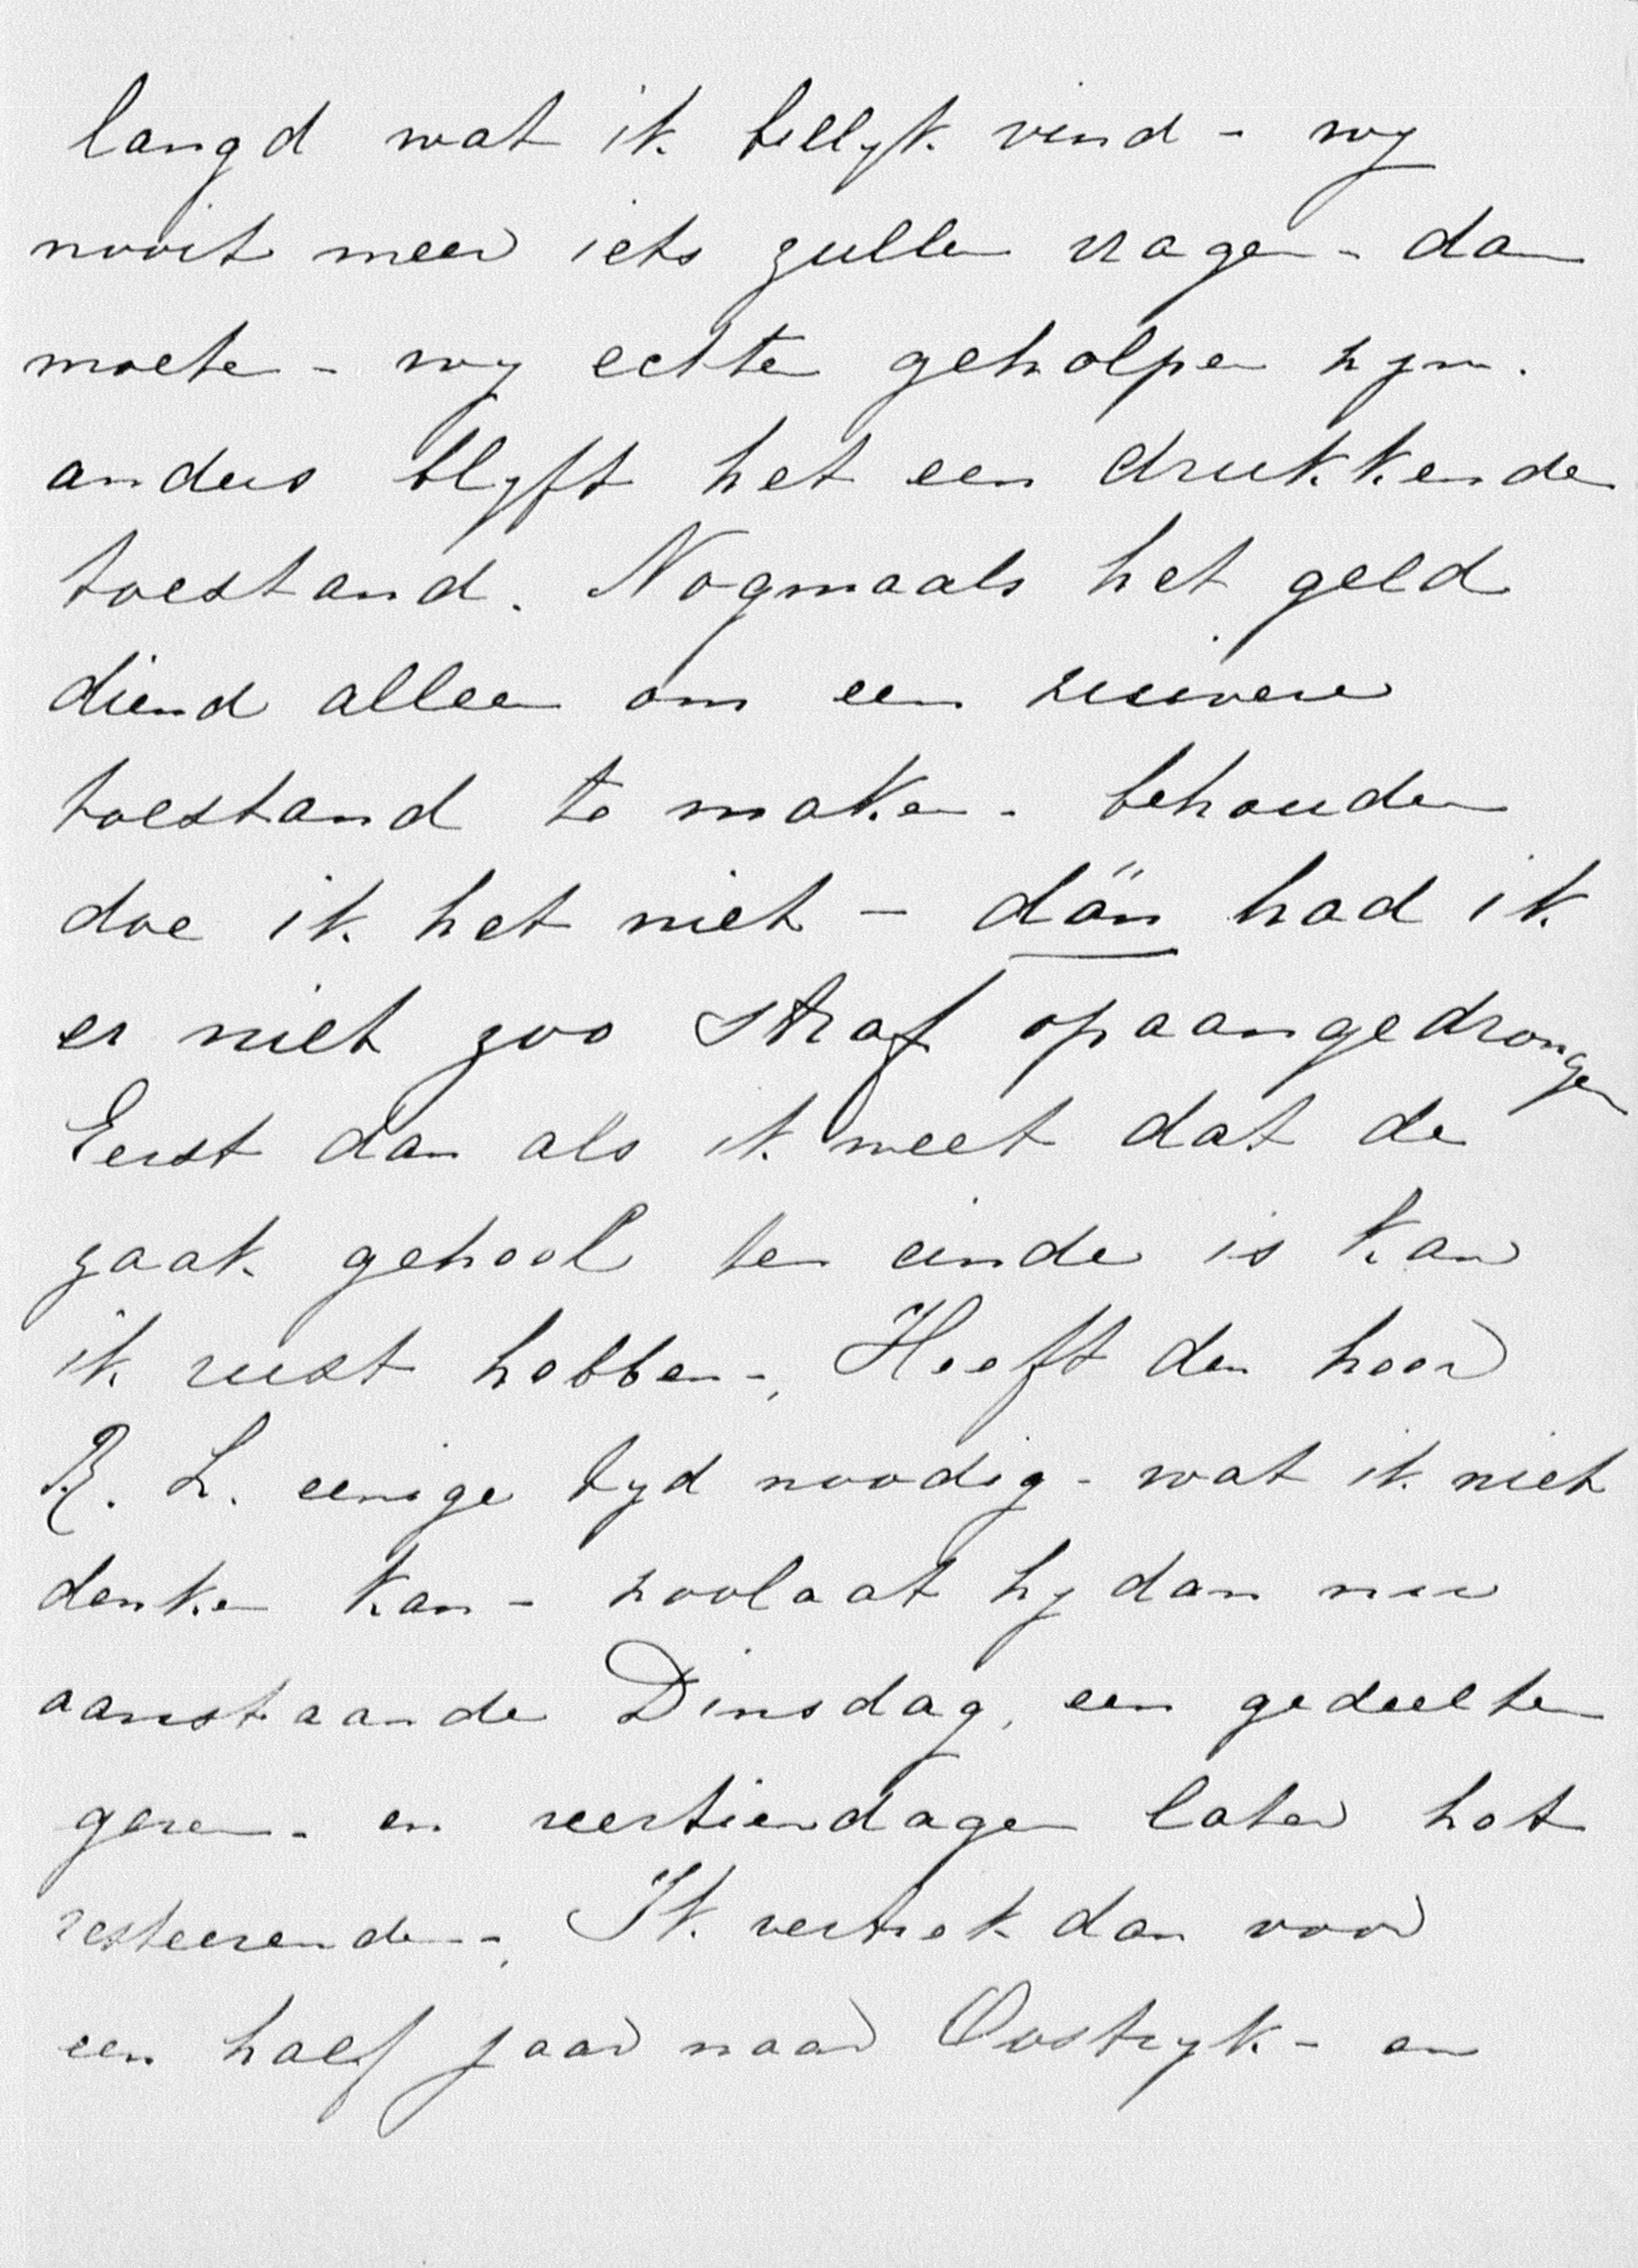 langd wat ik billyk vind - wy
nooit meer iets zullen vragen - dan
moeten - wy echter geholpen zyn.
anders blyft het een drukkende
toestand. Nogmaals het geld
diend alleen om een zuivere
toestand te maken - behouden
doe ik het niet - dän had ik
er niet zoo straf opaangedrongen
Eerst dan als ik weet dat de
zaak geheel ten einde is kan
ik rust hebben -, Heeft den heer
R. L. eenige tyd noodig - wat ik niet
denken kan - zoolaat hy dan nu
aanstaande Dinsdag, een gedeelte
geven - en veertiendagen later het
resteerende -, Ik vertrek dan voor
een half jaar naar Oostryk - en